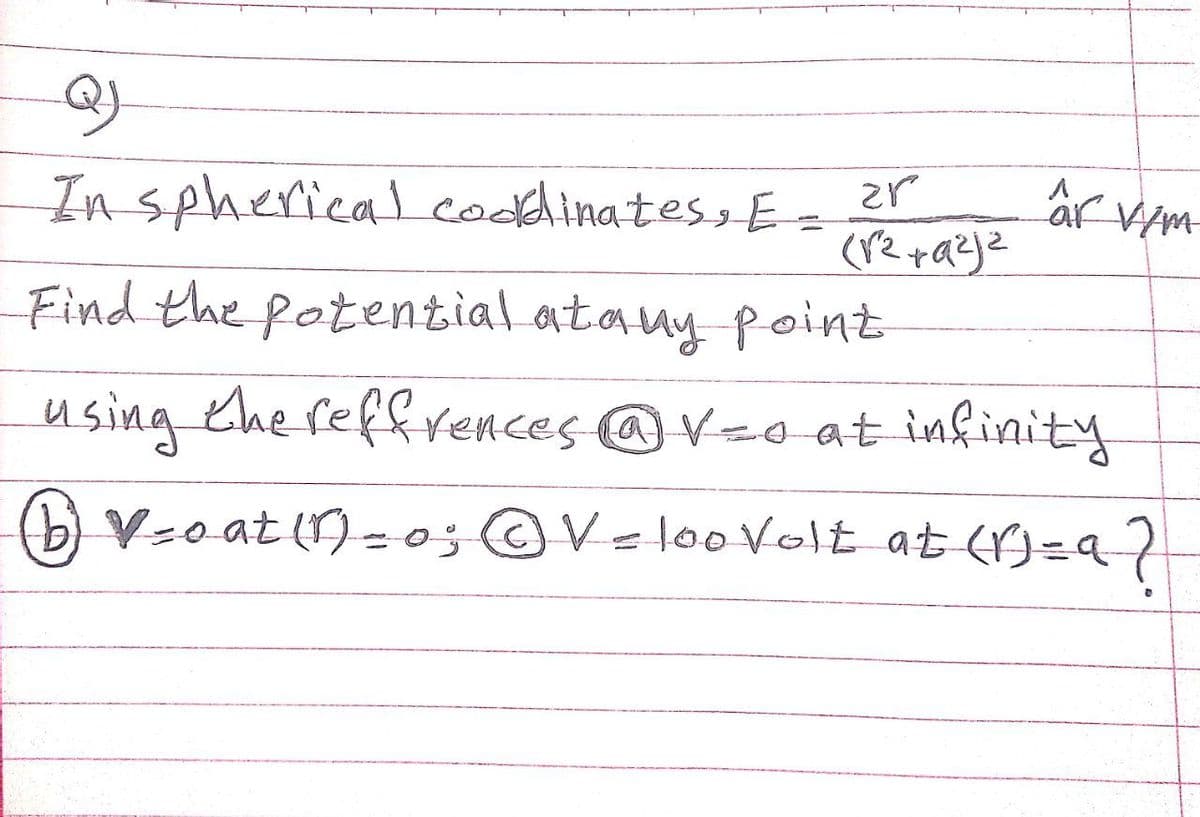 Q)
In spherical coordinates, E = 2r / (r2+a2)2 âr V/m
Find the potential at any point
using the reffrences ⓐ V=0 at infinity
ⓑ V=0 at (r)=0; ⓒ V=100 Volt at (r)=a?